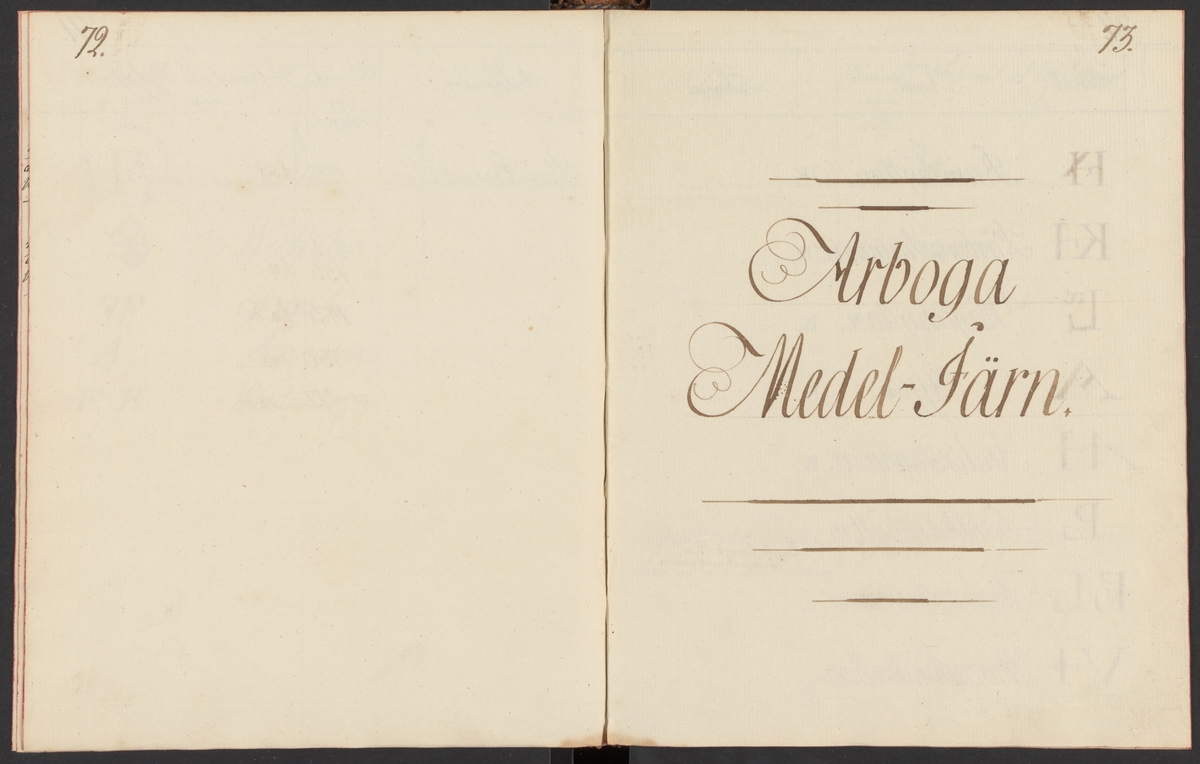 72.
73.
Arboga
Medel-Järn.